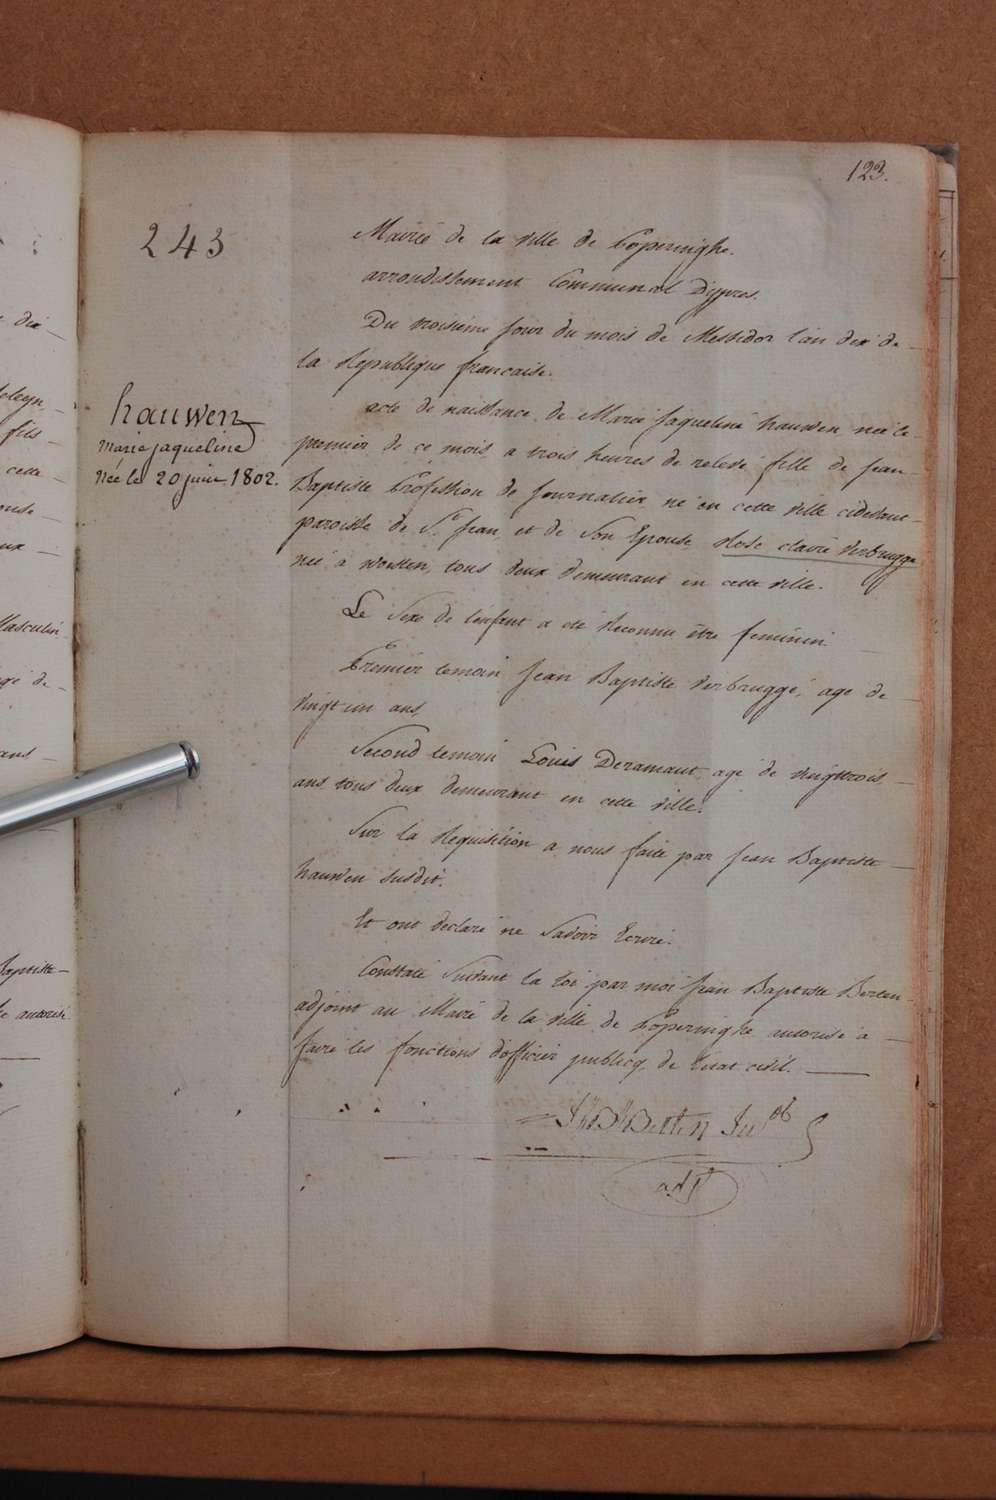 123.
243
Mairie de la ville de Poperinghe.
arrondissement Communal D'ypres.
Du troisième jour du mois de Messidor l'an dix de
la Republique francaise.
hauwen
marie jaqueline
Née le 20 juin 1802.
acte de naissance de Marie Jaqueline hauwen née le
premier de ce mois a trois heures de relevé, fille de Jean
Baptiste Profession de Journalier né en cette ville cidevant
paroisse de St. Jean, et de son Epouse Rose claire Verbrugge
née a woesten, tous deux demeurant en cette ville.
Le Sexe de l'enfant a eté Reconnu être feminin.
Premier temoin Jean Baptiste Verbrugge, age de
vingt un ans,
Second temoin Louis Deramaut agé de vingttrois
ans tous deux demeurant en cette ville.
Sur la Requisition a nous faite par Jean Baptiste
hauwen susdit.
Et ont declaré ne Savoir Ecrire.
Constaté Suivant la loi par moi Jean Baptiste Berten
adjoint au Maire de la ville de Poperinghe autorisé a
faire les fonctions d'officier publicq de l'etat civil.
Berten
adjt
dix
fils
cette
Masculin
agé de
ans
Baptiste
autorisé